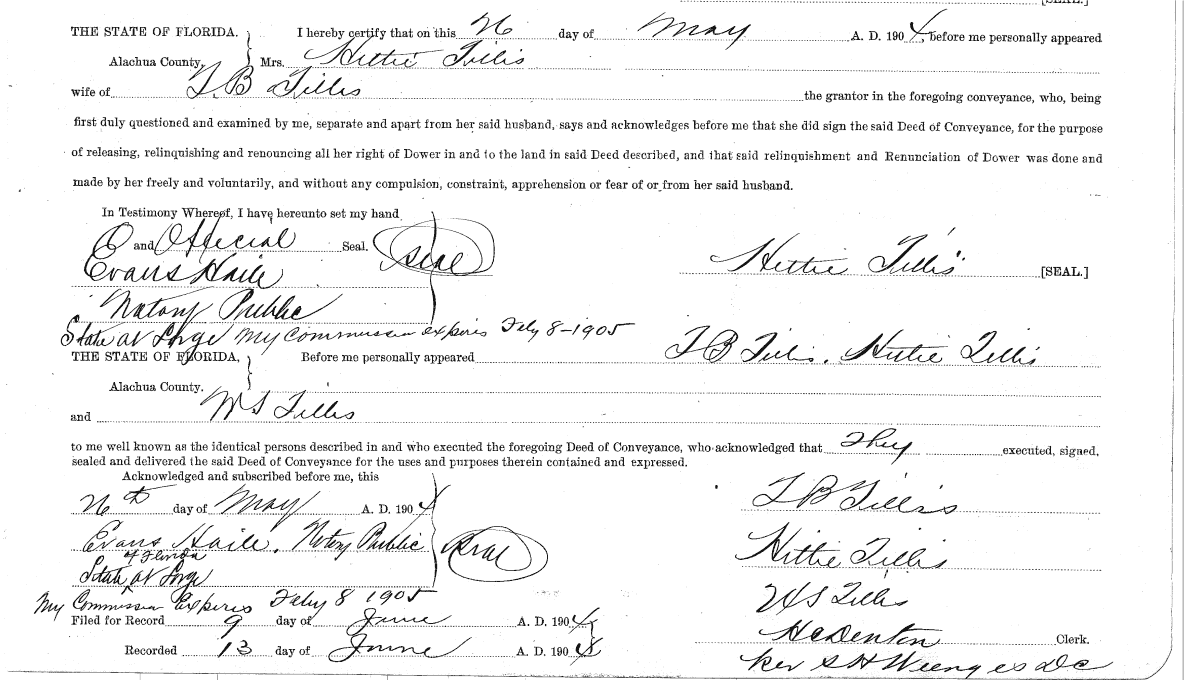 [SEAL.]
THE STATE OF FLORIDA. I hereby certify that on this 26 day of May A. D. 1904, before me personally appeared
Alachua County. Mrs. Hettie Tillis
wife of T. B Tillis the grantor in the foregoing conveyance, who, being
first duly questioned and examined by me, separate and apart from her said husband, says and acknowledges before me that she did sign the said Deed of Conveyance, for the purpose
of releasing, relinquishing and renouncing all her right of Dower in and to the land in said Deed described, and that said relinquishment and Renunciation of Dower was done and
made by her freely and voluntarily, and without any compulsion, constraint, apprehension or fear of or from her said husband.
In Testimony Whereof, I have hereunto set my hand
and Official Seal. Seal
Evans Haile Hettie Tillis [SEAL.]
Notary Public
State at Large My Commission expires Feby 8-1905
THE STATE OF FLORIDA, Before me personally appeared T B Tillis, Hettie Tillis
Alachua County.
and W S Tillis
to me well known as the identical persons described in and who executed the foregoing Deed of Conveyance, who acknowledged that They executed, signed,
sealed and delivered the said Deed of Conveyance for the uses and purposes therein contained and expressed.
Acknowledged and subscribed before me, this
26th day of May A. D. 1904 T B Tillis
Evans Haile, Notary Public Seal Hettie Tillis
of Florida
State at Large
My Commission Expires Feby 8 1905 W S Tillis
Filed for Record 9 day of June A. D. 1904 H C Denton Clerk.
Recorded 13 day of June A. D. 190 Per S H DC